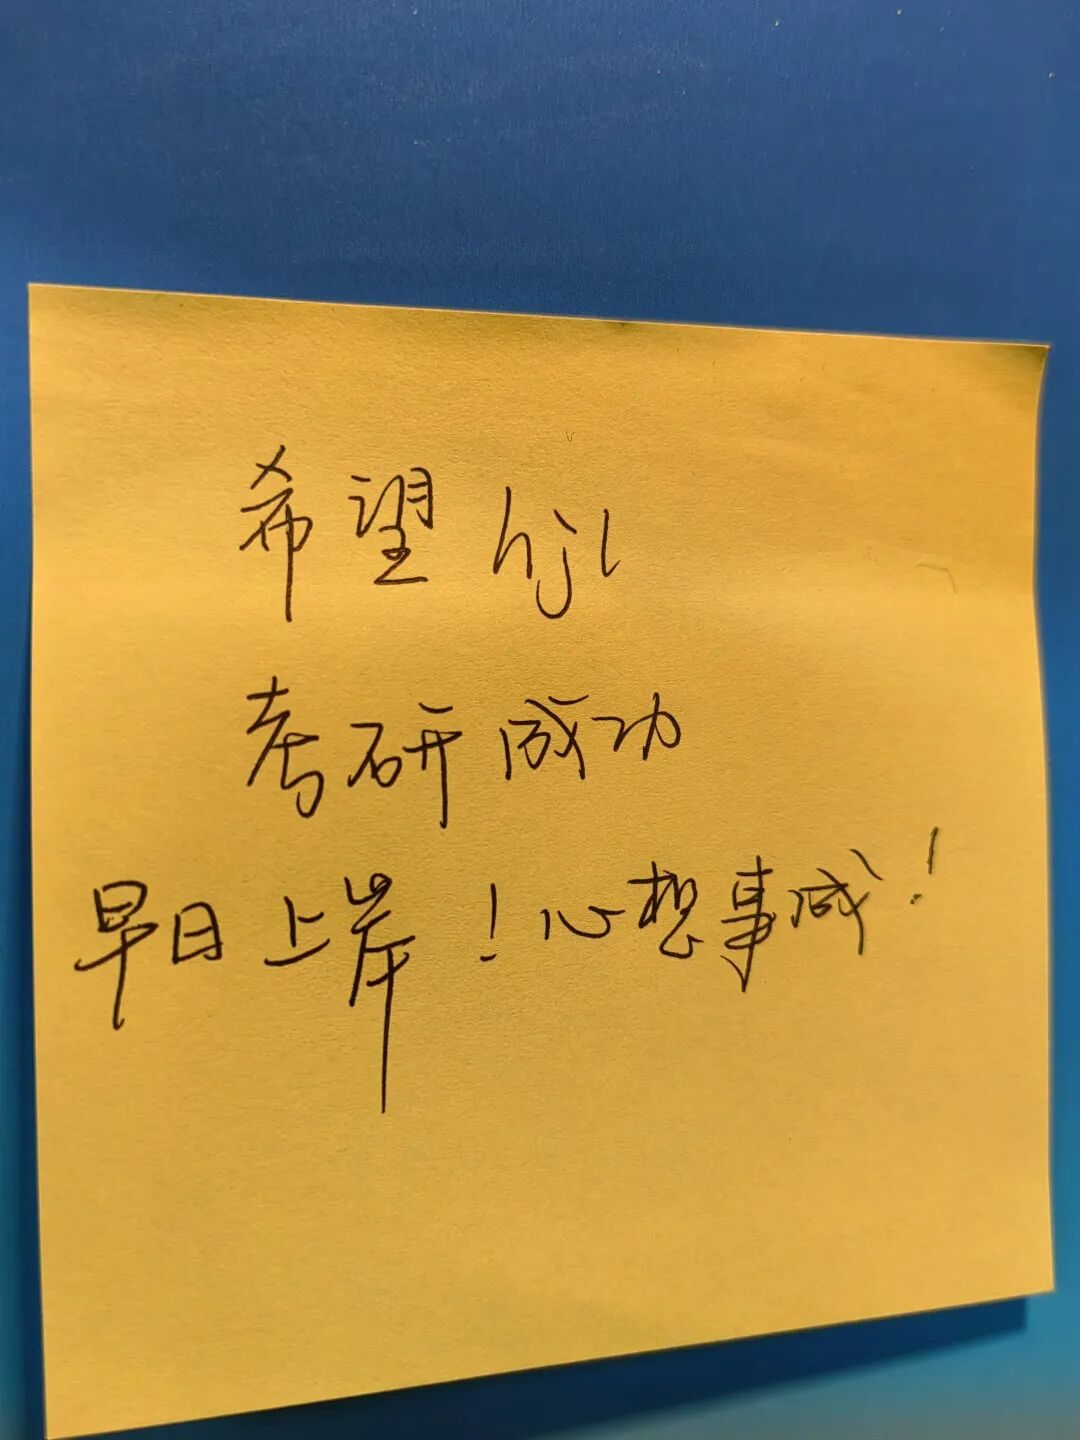 希望 hjl
考研成功
早日上岸！心想事成！